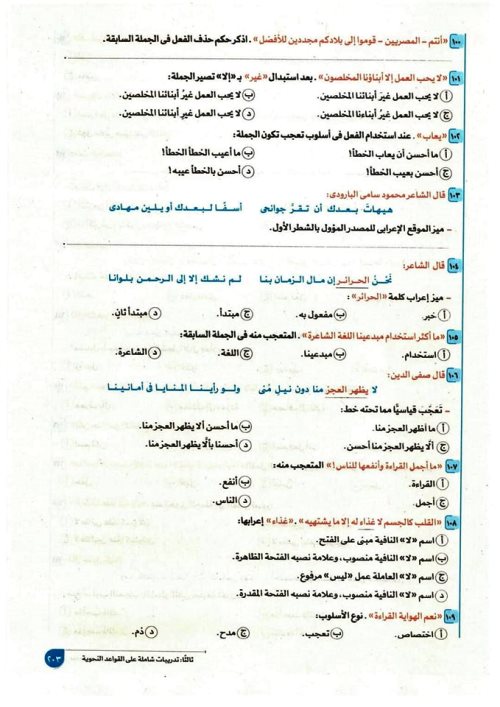 ١٠٠ «أنتم - المصريين - قوموا إلى بلادكم مجددين للأفضل» . اذكر حكم حذف الفعل فى الجملة السابقة.
١٠١ «لا يحب العمل إلا أبناؤنا المخلصون» . بعد استبدال «غير» بـ «إلا» تصير الجملة:
أ لا يحب العمل غيرَ أبنائنا المخلصين.
ب لا يحب العمل غيرُ أبنائنا المخلصين.
ج لا يحب العمل غيرُ أبناءنا المخلصين.
د لا يحب العمل غيرِ أبنائنا المخلصين.
١٠٢ «يعاب» . عند استخدام الفعل فى أسلوب تعجب تكون الجملة:
أ ما أحسن أن يعاب الخطأ!
ب ما أعيب الخطأ الخطأ!
ج أحسن بعيب الخطأ!
د أحسن بالخطأ عيبه!
١٠٣ قال الشاعر محمود سامى البارودى:
هيهاتَ بعدك أن تقرَّ جوانحى أسفًا لبعدك أو يلين مهادى
- ميز الموقع الإعرابى للمصدر المؤول بالشطر الأول.
١٠٤ قال الشاعر:
نُحْنُ الحرائر إن مال الزمان بنا لم نشك إلا إلى الرحمن بلوانا
- ميز إعراب كلمة «الحرائر» :
أ خبر.
ب مفعول به.
ج مبتدأ.
د مبتدأ ثانٍ.
١٠٥ «ما أكثر استخدام مبدعينا اللغة الشاعرة» . المتعجب منه فى الجملة السابقة:
أ استخدام.
ب مبدعينا.
ج اللغة.
د الشاعرة.
١٠٦ قال صفى الدين:
لا يظهر العجز منا دون نيل مُنى ولو رأينا المنايا فى أمانينا
- تَعَجَّب قياسيًّا مما تحته خط:
أ ما أظهر العجز منا.
ب ما أحسن ألا يظهر العجز منا.
ج ألا يظهر العجز منا أحسن.
د أحسنا بألَّا يظهر العجز منا.
١٠٧ «ما أجمل القراءة وأنفعها للناس!» المتعجب منه:
أ القراءة.
ب أنفع.
ج أجمل.
د الناس.
١٠٨ «القلب كالجسم لا غذاء له إلا ما يشتهيه» . «غذاء» إعرابها:
أ اسم «لا» النافية مبنى على الفتح.
ب اسم «لا» النافية منصوب، وعلامة نصبه الفتحة الظاهرة.
ج اسم «لا» العاملة عمل «ليس» مرفوع.
د اسم «لا» النافية منصوب، وعلامة نصبه الفتحة المقدرة.
١٠٩ «نعم الهواية القراءة» . نوع الأسلوب:
أ اختصاص.
ب تعجب.
ج مدح.
د ذم.
ثالثًا: تدريبات شاملة على القواعد النحوية ٢٠٣